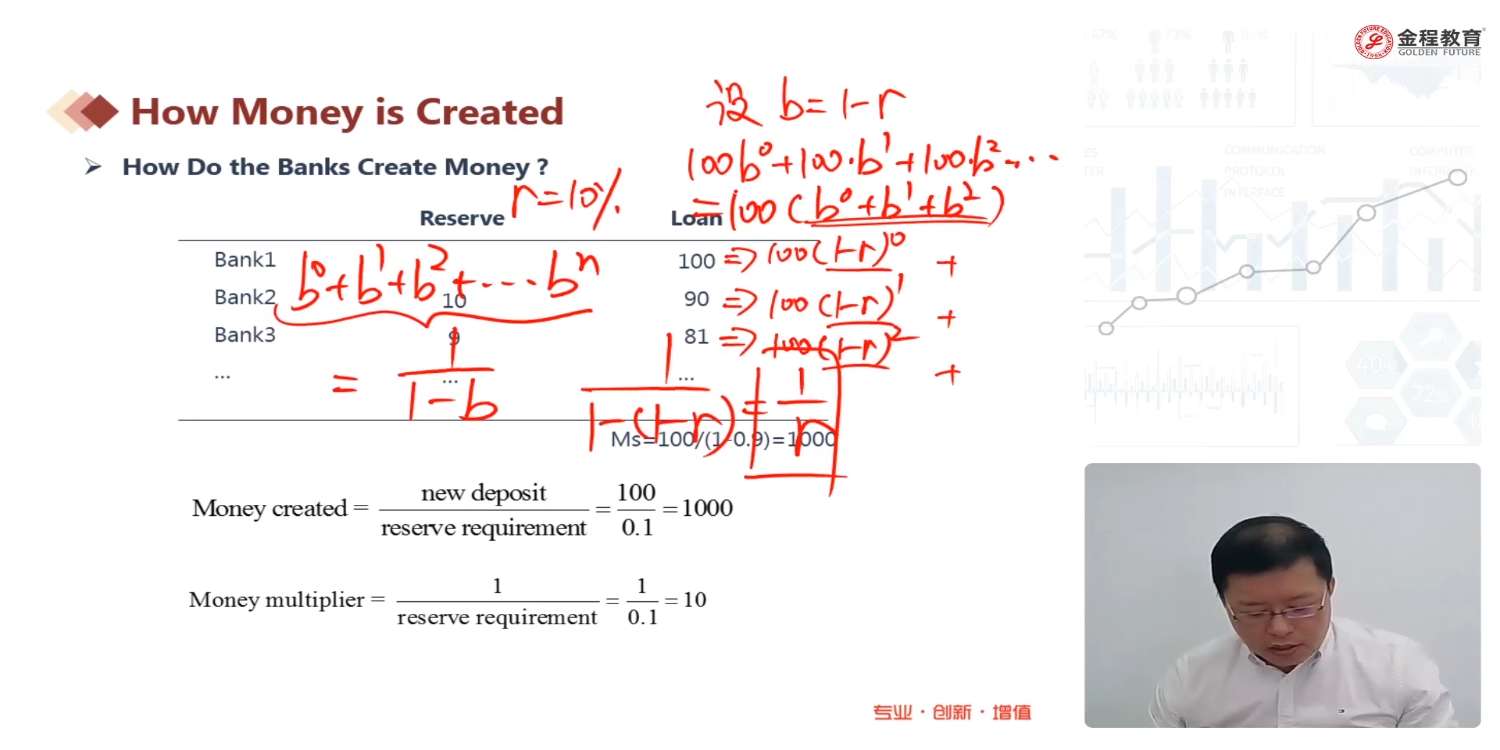 金程教育
GOLDEN FUTURE
How Money is Created
设 b=1-r
How Do the Banks Create Money ?
100b⁰+100·b¹+100·b²...
r=10%
=100(b⁰+b¹+b²)
Reserve Loan
Bank1 100 ⇒ 100(1-r)⁰ +
b⁰+b¹+b²+...bⁿ
Bank2 10 90 ⇒ 100(1-r)¹ +
Bank3 9 81 ⇒ 100(1-r)² +
... ... ...
= 1/(1-b) 1/(1-(1-r)) = 1/r
Ms=100/(1-0.9)=1000
Money created = new deposit / reserve requirement = 100 / 0.1 = 1000
Money multiplier = 1 / reserve requirement = 1 / 0.1 = 10
专业·创新·增值